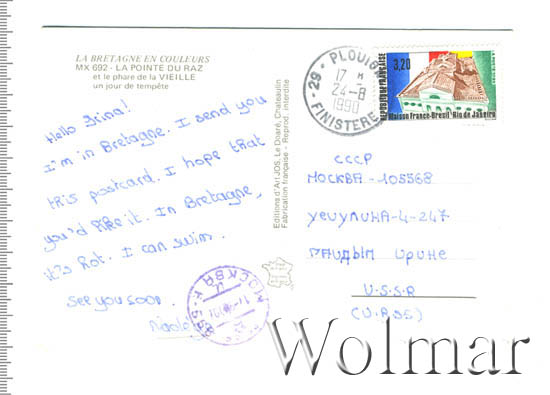 LA BRETAGNE EN COULEURS
MX 692 - LA POINTE DU RAZ
et le phare de la VIEILLE
un jour de tempête
Hello Irina!
I'm in Bretagne. I send you
this postcard. I hope that
you'd like it. In Bretagne,
it's hot. I can swim.
See you soon.
Editions d'Art JOS, Le Doaré, Chateaulin
Fabrication française - Reprod. interdite
29 - PLOUIGN
17 H
24-8
1990
FINISTERE
3,20
REPUBLIQUE FRANÇAISE
LA POSTE 1990
Maison France-Bresil Rio de Janeiro
СССР
МОСКВА - 105568
-4-247
ИРИНЕ
U.S.S.R
(U.R.SS)
МОСКВА
Wolmar